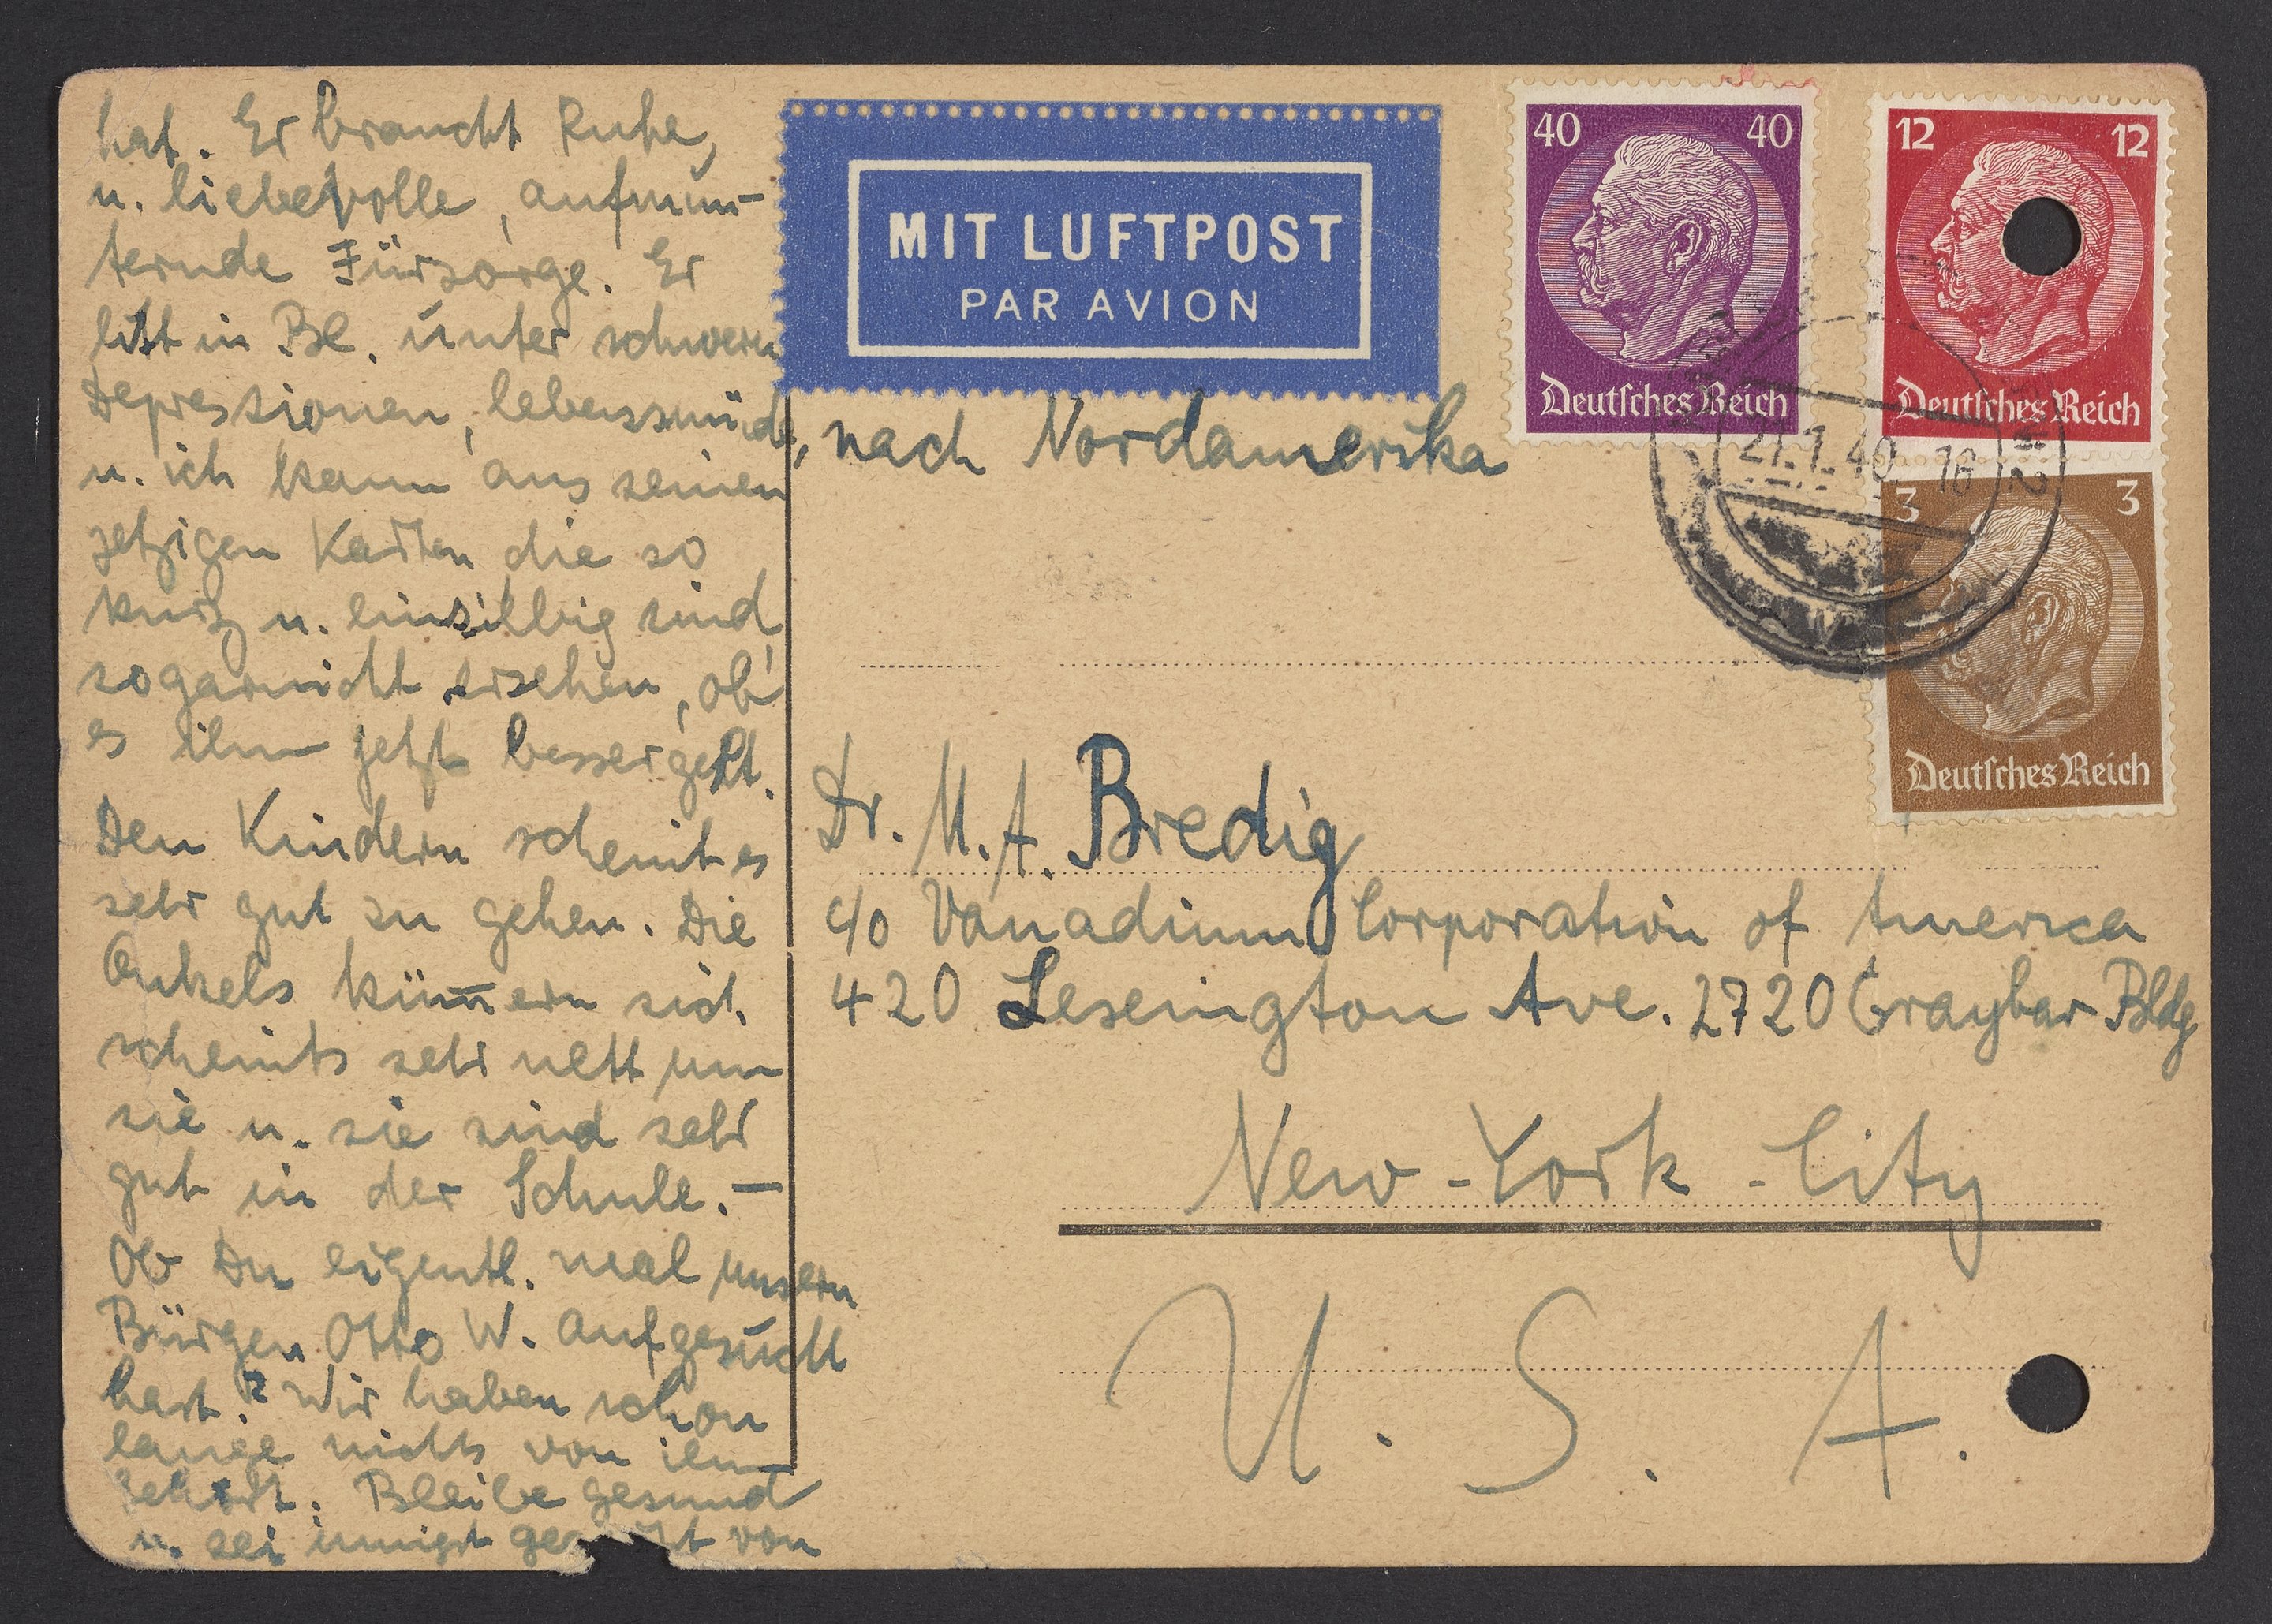 hat. Er braucht Ruhe,
u. liebevolle, aufmun-
ternde Fürsorge. Er
litt in Be. unter schweren
Depressionen, lebensmüde,
u. ich kann aus seinen
jetzigen Karten die so
kurz u. einsilbig sind,
sogarnicht ersehen, ob
es ihm jetzt bessergeht.
Den Kindern scheint es
sehr gut zu gehen. Die
Onkels küm̅ern sich
scheints sehr nett um
sie u. sie sind sehr
gut in der Schule. —
Ob Du eigentl. mal unsern
Bürgen Otto W. aufgesucht
hast? Wir haben schon
lange nichts von ihm
gehört. Bleibe gesund
u. sei innigst von
MIT LUFTPOST
PAR AVION
nach Nordamerika
40 40
Deutsches Reich
12 12
Deutsches Reich
3 3
Deutsches Reich
21.1.40 16
Dr. M. A. Bredig
c/o Vanadium Corporation of America
420 Lexington Ave. 2720 Graybar Bldg
New-York-City
U. S. A.